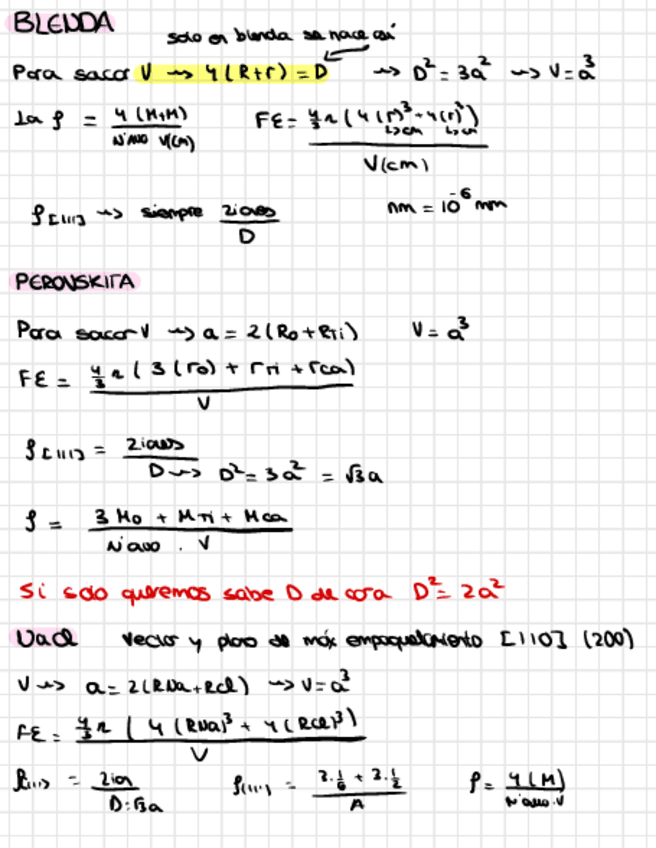 BLENDA
solo en blenda se hace así
Para sacar V → 4(R+r) = D → D² = 3a² → V = a³
La ρ = 4(M+M) / Nºavo V(cm)
FE = 4/3 π (4(r)³ + 4(r)³) / V(cm)
↳cm ↳cm
ρ[111] → siempre 2iones / D
nm = 10⁻⁶ mm
PEROVSKITA
Para sacar V → a = 2(Ro+RTi) V = a³
FE = 4/3 π (3(ro) + rTi + rca) / V
ρ[111] = 2iones / D → D² = 3a² = √3a
ρ = 3Mo + MTi + Mca / Nºavo . V
Si solo queremos sabe D de cara D² = 2a²
NaCl Vector y plano de máx empaquetamiento [110] (200)
V → a = 2(RNa+RCl) → V = a³
FE = 4/3 π (4(RNa)³ + 4(RCl)³) / V
ρ[111] = 2ion / D=√3a
ρ(111) = 3·1/6 + 3·1/2 / A
ρ = 4(M) / Nºavo.V